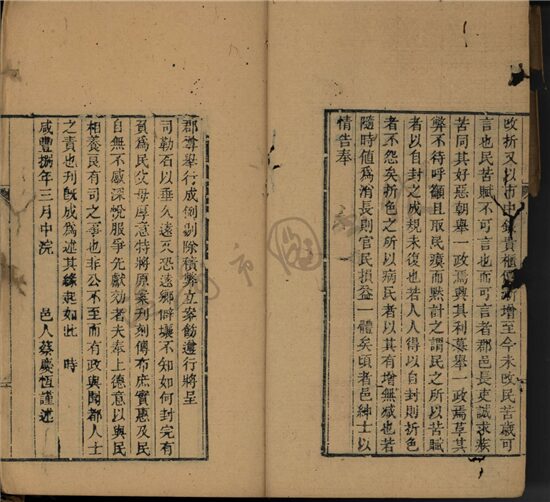 改折又以市中銀貴櫃價漸增至今未改民苦歲可
言也民苦賦不可言也而可言者郡邑長吏誠求疾
苦同其好惡朝舉一政焉與其利暮舉一政焉草其
弊不待呼籲且取民瘼而黙計之謂民之所以苦賦
者以自封之成規未復也若人人得以自封則折色
者不怨矣折色之所以病民者以其有增無減也若
隨時値爲消長則官民損益一體矣頃者邑紳士以
情告奉
郡尊舉行成例剔除積弊立筝飭遵行將呈
司勒石以垂久遠又恐遠鄉僻壤不知如何封完有
負爲民父母厚意特將原案刋刻傳布庶實惠及民
自無不感深悅服爭先獻効者夫奉上德意以與民
相養良有司之事也非公不至而有政與聞都人士
之責也刋旣成爲述其緣起如此 時
咸豐捌年三月中浣 邑人蔡慶恆謹述